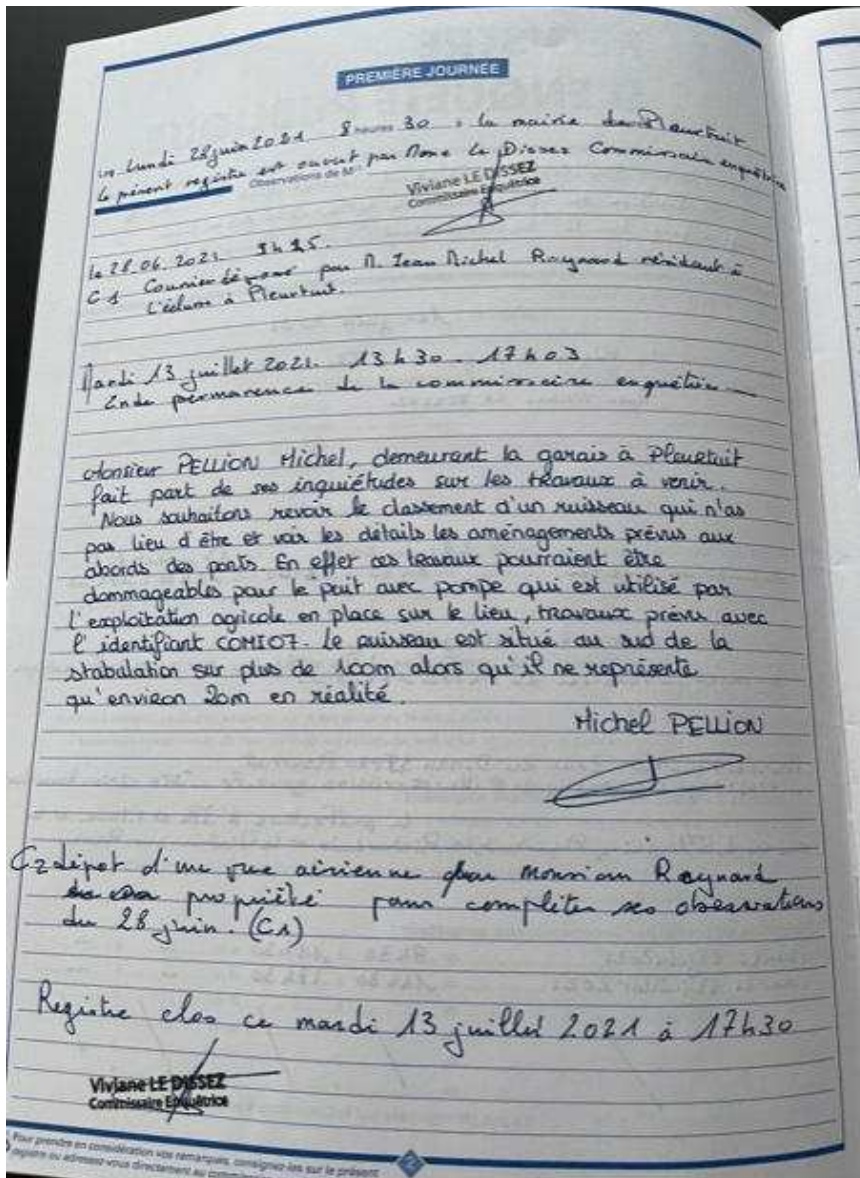 PREMIÈRE JOURNÉE
Les Lundi 28 juin 2021 8 heures 30 à la mairie de Pleurtuit
Le présent registre est ouvert par Mme Le Dissez Commissaire enquêtrice
Observations de M
Viviane LE DISSEZ
Commissaire Enquêtrice
le 28.06.2021
C1 Courrier déposé par M. Jean Michel Raynard résidant à
L'écluse à Pleurtuit.
Mardi 13 juillet 2021. 13h30 - 17h03
permanence de la commissaire enquêtrice
Monsieur PELLION Michel, demeurant la garais à Pleurtuit
fait part de ses inquiétudes sur les travaux à venir.
Nous souhaitons revoir le classement d'un ruisseau qui n'as
pas lieu d'être et voir les détails les aménagements prévus aux
abords des ponts. En effet ces travaux pourraient être
dommageables pour le puit avec pompe qui est utilisé par
l'exploitation agricole en place sur le lieu, travaux prévu avec
l'identifiant COMI07. Le ruisseau est situé au sud de la
stabulation sur plus de 100m alors qu'il ne représente
qu'environ 20m en réalité.
Michel PELLION
C2 dépot d'une vue aérienne par Monsieur Raynard
propriété pour compléter ses observations
du 28 juin. (C1)
Registre clos ce mardi 13 juillet 2021 à 17h30
Viviane LE DISSEZ
Commissaire Enquêtrice
Pour prendre en considération vos remarques, consignez-les sur le présent
registre ou adressez-vous directement au
2